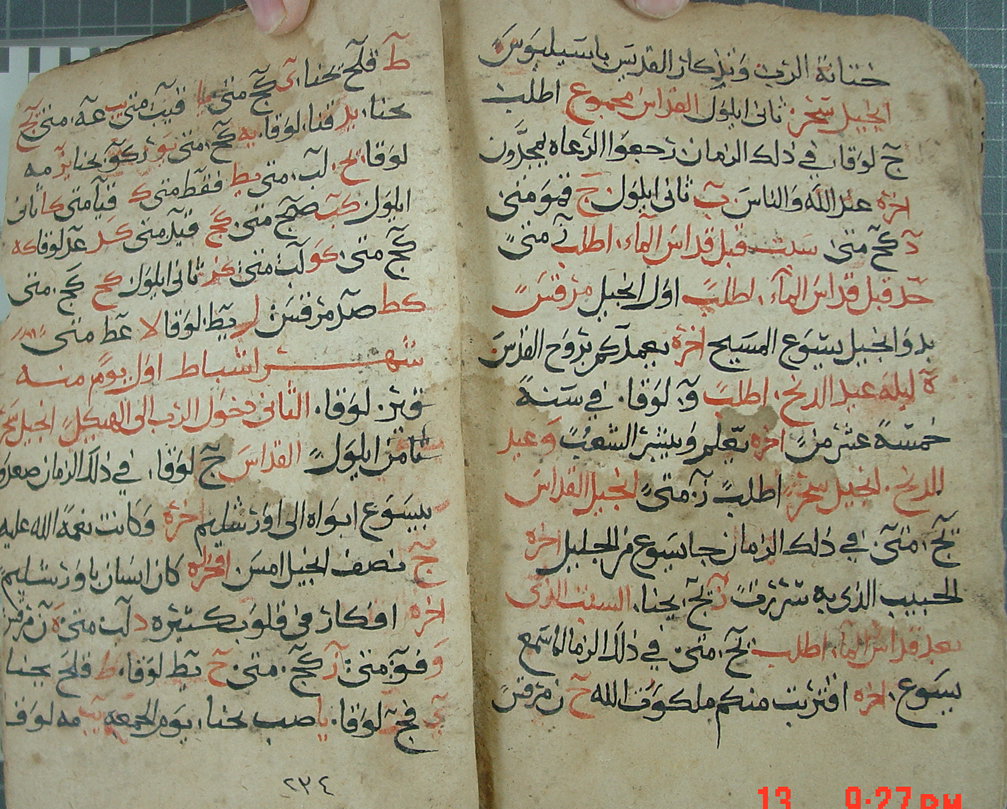 ختانة الرب وتذكار القديس باسيليوس
انجيل سحر ثاني ايلول القداس مجموع اطلب
لوقا في ذلك الزمان رجعوا الرعاه يمجدون
اخره عند الله والناس ب ثاني ايلول ج متى
د كح متى سبت قبل قداس الماء اطلب ز متى
حد قبل قداس الماء اطلب اول انجيل مرقس
بدو انجيل يسوع المسيح اخره يعمدكم بروح القدس
ه ليلة عيد الدنح اطلب و لوقا في سنة
خمسة عشر من اخره يعلم ويبشر الشعب و عيد
الدنح انجيل سحر اطلب ز متى انجيل القداس
متى في ذلك الزمان جا يسوع من الجليل اخره
الحبيب الذي به سررت ز يحنا السبت الذي
بعد قداس الماء اطلب متى في ذلك الزمان لما سمع
يسوع اخره اقتربت منكم ملكوت الله ح مرقس
ط قلح يحنا ى كج متى
يحنا يد قنا لوقا يه كح متى يو يحنا يز مه
لوقا يح لب متى يط فقط متى ك متى كا ثاني
ايلول كب صح متى كج قيد متى كد عد لوقا كه
كح متى كو لب متى كز ثاني ايلول كح كج متى
كط صد مرقس ل يط لوقا لا عط متى
شهر اشباط اول يوم منه
لوقا الثاني دخول الرب الى الهيكل انجيل سحر
ثامن ايلول القداس ج لوقا في ذلك الزمان صعدو
بيسوع ابواه الى اورشليم اخره وكانت نعمة الله عليه
ج نصف انجيل امس اقراه كان انسان باورشليم
اخره افكار في قلوب كثيره د لب متى ه مرقس
و متى ز كج متى ح يط لوقا ط قلح يحنا
ى لوقا يا صب يحنا يوم الجمعه يب مه لوقا
٢٣٤
13 9:27 PM